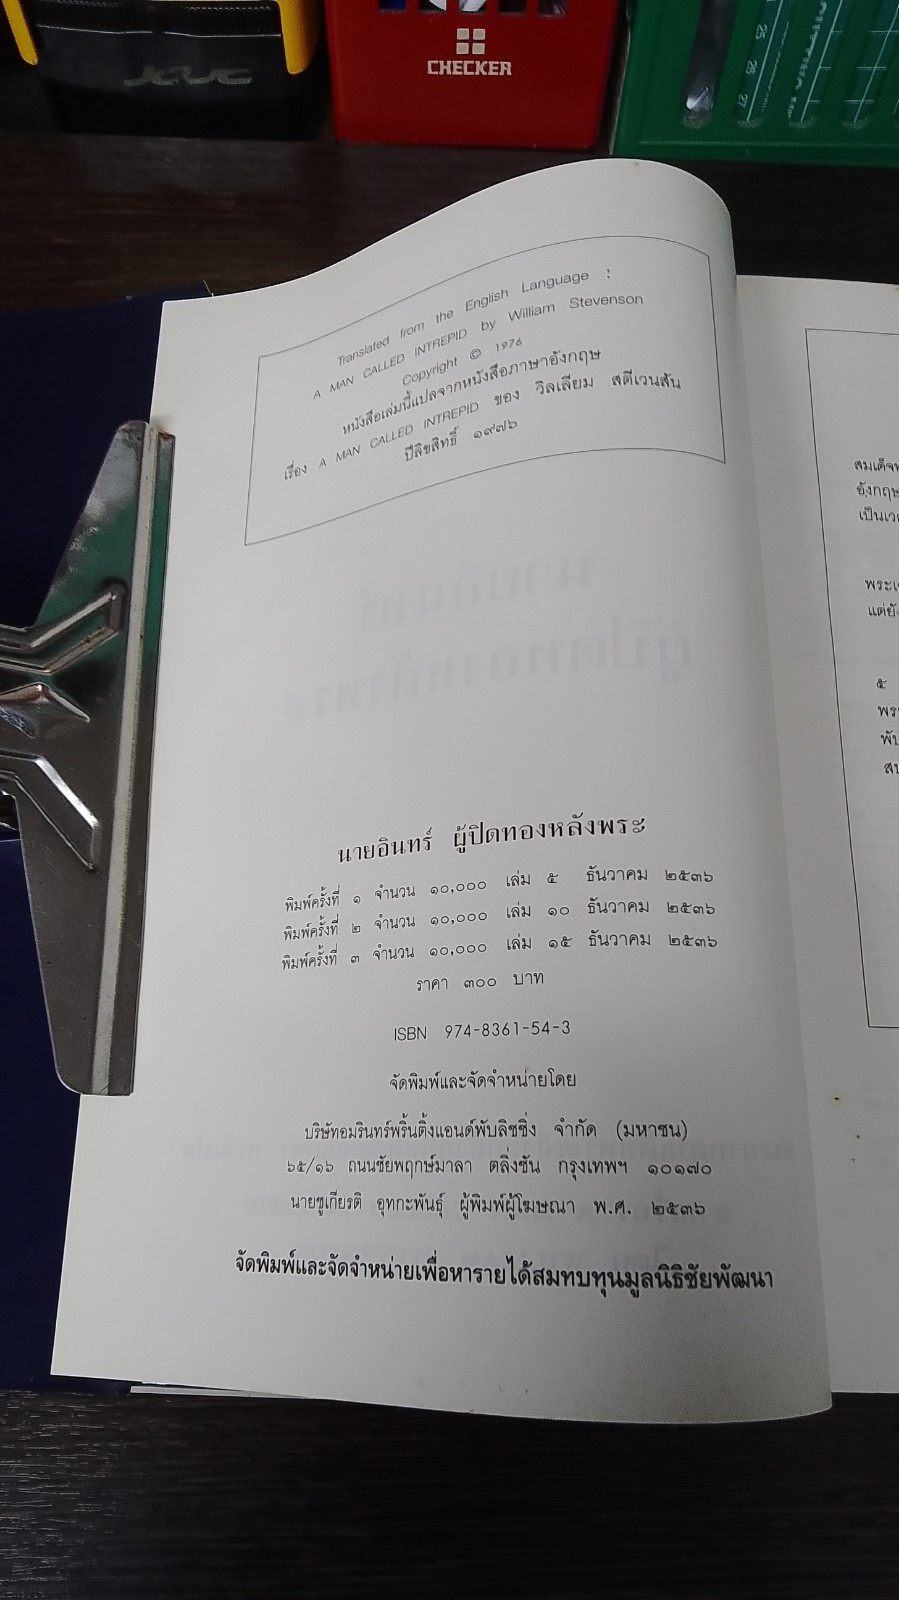 CHECKER
25
26
27
Translated from the English Language :
A MAN CALLED INTREPID by William Stevenson
Copyright © 1976
หนังสือเล่มนี้แปลจากหนังสือภาษาอังกฤษ
เรื่อง A MAN CALLED INTREPID ของ วิลเลียม สตีเวนสัน
ปีลิขสิทธิ์ ๑๙๗๖
นายอินทร์
ผู้ปิดทองหลังพระ
นายอินทร์ ผู้ปิดทองหลังพระ
พิมพ์ครั้งที่ ๑ จำนวน ๑๐,๐๐๐ เล่ม ๕ ธันวาคม ๒๕๓๖
พิมพ์ครั้งที่ ๒ จำนวน ๑๐,๐๐๐ เล่ม ๑๐ ธันวาคม ๒๕๓๖
พิมพ์ครั้งที่ ๓ จำนวน ๑๐,๐๐๐ เล่ม ๑๕ ธันวาคม ๒๕๓๖
ราคา ๓๐๐ บาท
ISBN 974-8361-54-3
จัดพิมพ์และจัดจำหน่ายโดย
บริษัทอมรินทร์พริ้นติ้งแอนด์พับลิชชิ่ง จำกัด (มหาชน)
๖๕/๑๖ ถนนชัยพฤกษ์มาลา ตลิ่งชัน กรุงเทพฯ ๑๐๑๗๐
นายชูเกียรติ อุทกะพันธุ์ ผู้พิมพ์ผู้โฆษณา พ.ศ. ๒๕๓๖
จัดพิมพ์และจัดจำหน่ายเพื่อหารายได้สมทบทุนมูลนิธิชัยพัฒนา
สมเด็จ
อังกฤษ
เป็นเว
พระเ
แต่ยัง
๕
พร
พัน